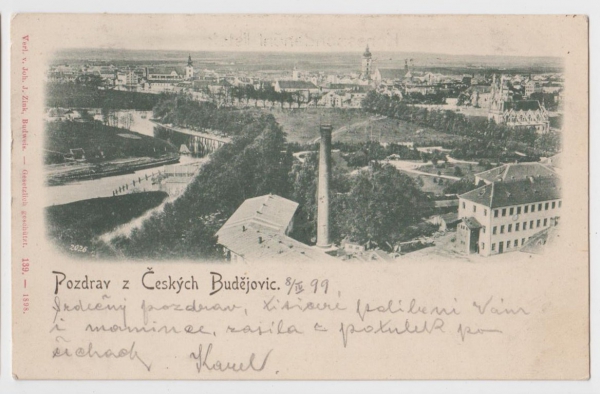 Verl. v. Joh. J. Zink, Budweis. — Gesetzlich geschützt. 139. — 1898.
Pozdrav z Českých Budějovic. 8/IV 99
Srdečný pozdrav, tisíceré políbení Vám
i mamince, zasílá z potulek po
Čechách Karel.